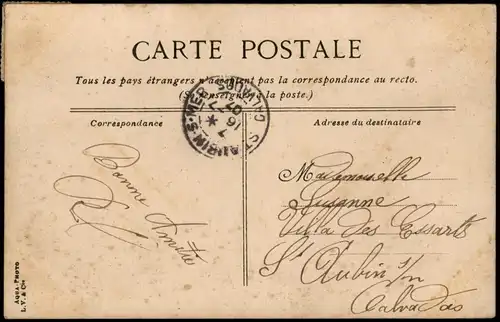 CARTE POSTALE
Tous les pays étrangers n'acceptent pas la correspondance au recto.
(Se renseigner à la poste.)
ST AUBIN-S-MER
CALVADOS
7
16 -7
07
Correspondance
Adresse du destinataire
Bonne Amitié
Mademoiselle
Susanne
Villa des Essarts
St Aubin s/m
Calvados
AQUA-PHOTO
L. V. & Cie